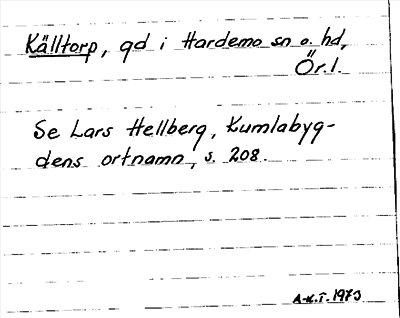 Källtorp, gd i Hardemo sn o. hd,
Ör.l.
Se Lars Hellberg, Kumlabyg-
dens ortnamn, s. 208.
A-K.T. 1973